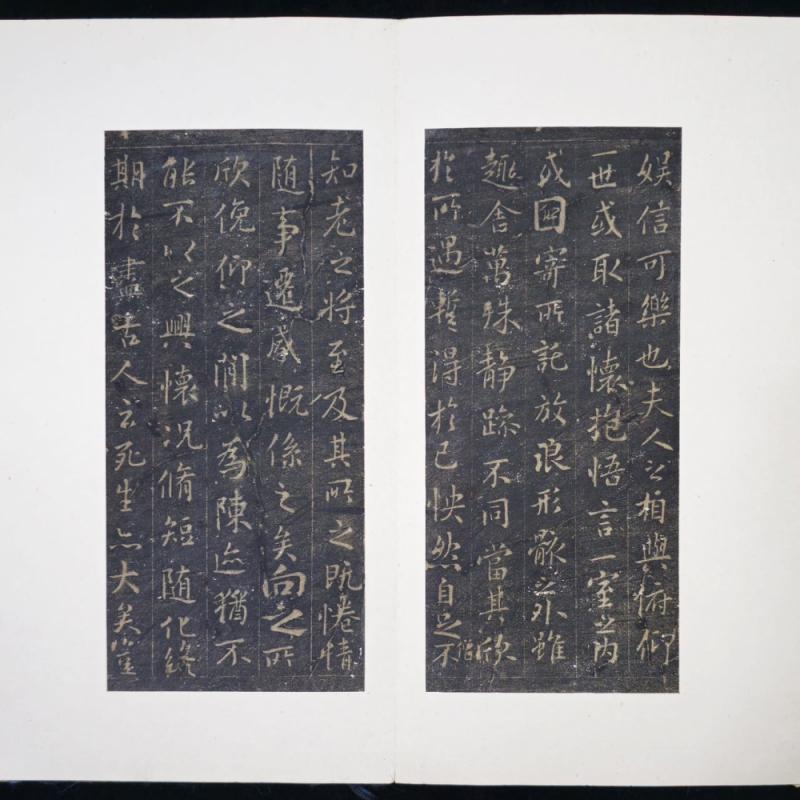 娱信可樂也夫人之相與俯仰
一世或取諸懷抱悟言一室之内
或因寄所託放浪形骸之外雖
趣舍萬殊静躁不同當其欣
於所遇暫得於己怏然自足不
知老之將至及其所之既惓情
随事遷感慨係之矣向之所
欣俛仰之閒以為陳迹猶不
能不以之興懷況脩短随化終
期於盡古人云死生亦大矣豈